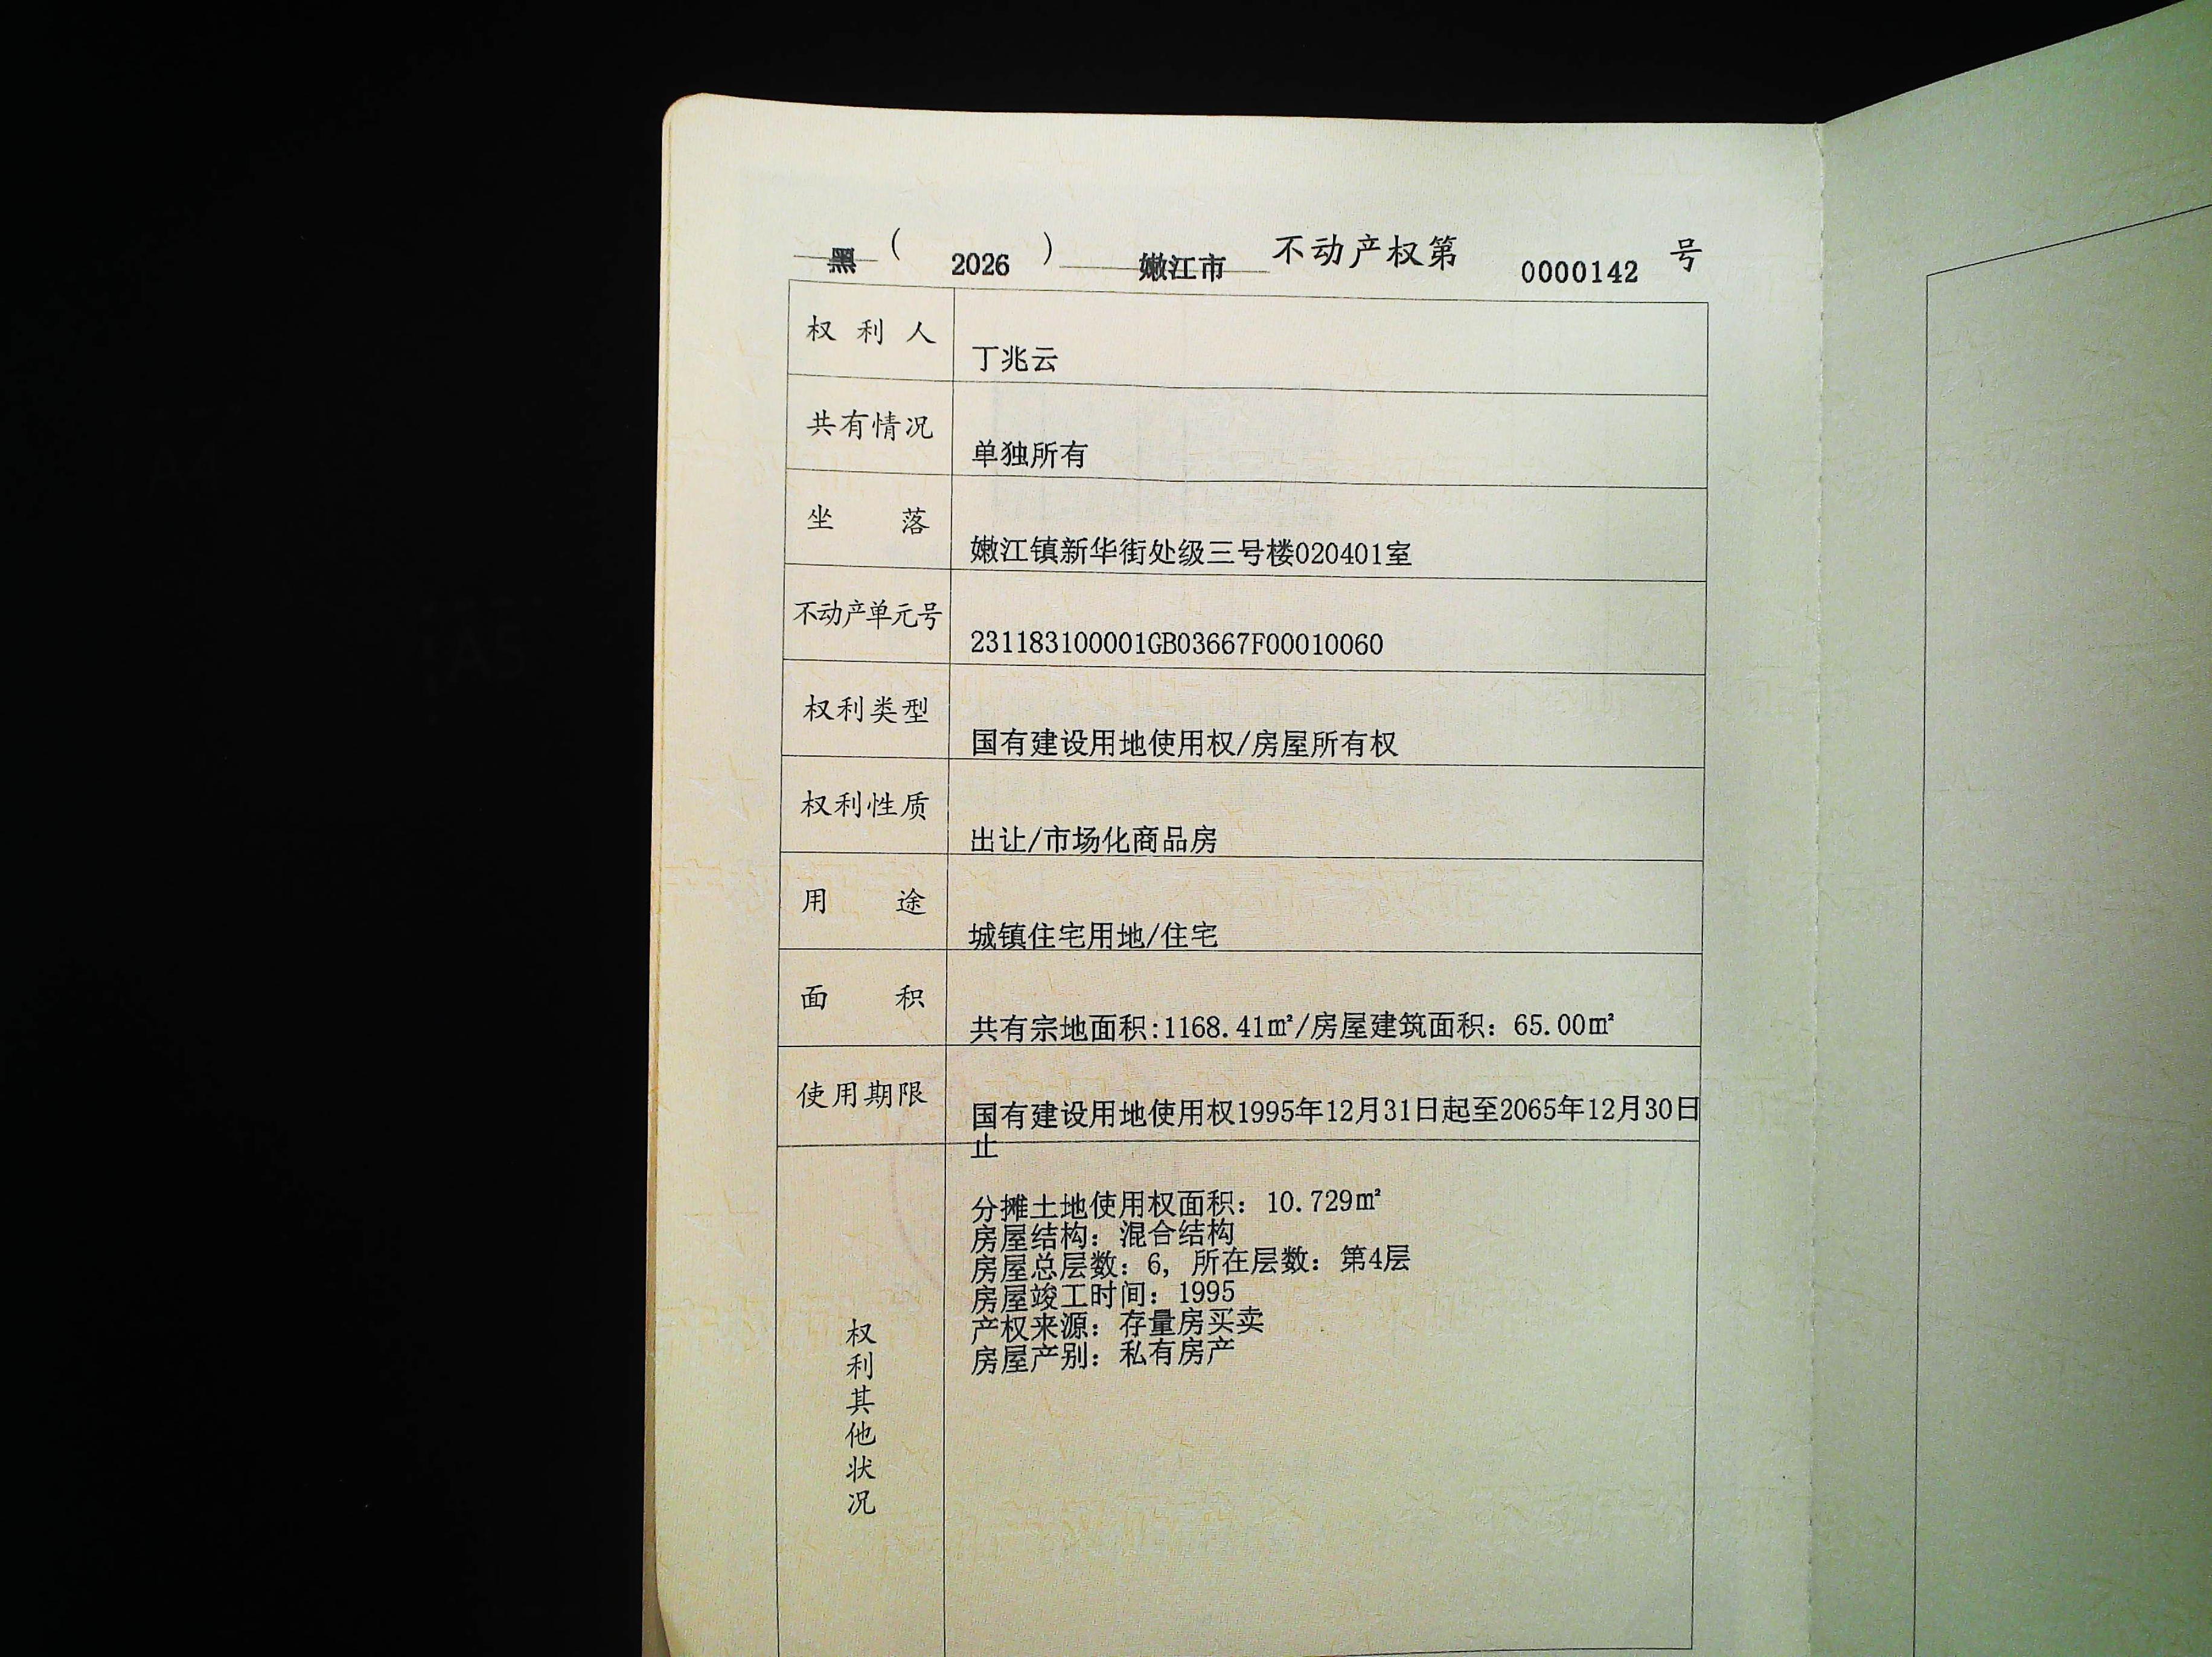 黑（2026）嫩江市不动产权第0000142号
权利人 丁兆云
共有情况 单独所有
坐落 嫩江镇新华街处级三号楼020401室
不动产单元号 231183100001GB03667F00010060
权利类型 国有建设用地使用权/房屋所有权
权利性质 出让/市场化商品房
用途 城镇住宅用地/住宅
面积 共有宗地面积:1168.41㎡/房屋建筑面积：65.00㎡
使用期限 国有建设用地使用权1995年12月31日起至2065年12月30日
止
权利其他状况
分摊土地使用权面积：10.729㎡
房屋结构：混合结构
房屋总层数：6，所在层数：第4层
房屋竣工时间：1995
产权来源：存量房买卖
房屋产别：私有房产